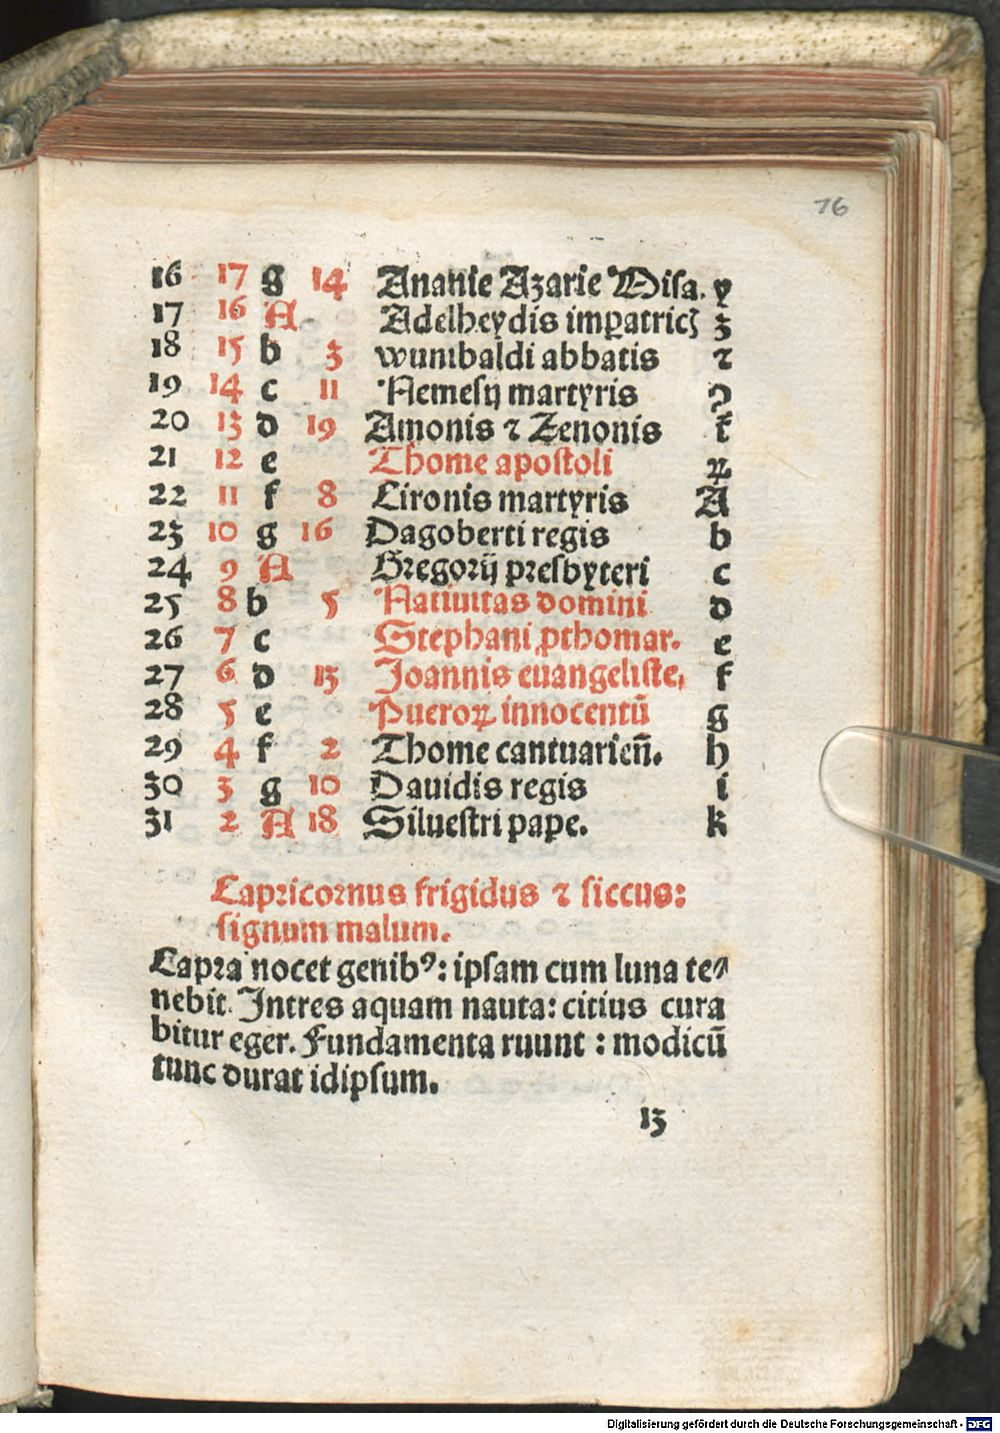 76
16 17 g 14 Ananie Azarie Misa. y
17 16 A Adelheydis imꝑatricꝫ z
18 15 b 3 wunibaldi abbatis ⁊
19 14 c 11 Nemesij martyris ꝯ
20 13 d 19 Amonis ⁊ Zenonis
21 12 e Thome apostoli ꝝ
22 11 f 8 Cironis martyris A
23 10 g 16 Dagoberti regis b
24 9 A Gregorij presbyteri c
25 8 b 5 Natiuitas domini d
26 7 c Stephani ꝓthomar. e
27 6 d 13 Joannis euangeliste, f
28 5 e Pueroꝝ innocentū g
29 4 f 2 Thome cantuarien̄. h
30 3 g 10 Dauidis regis i
31 2 A 18 Siluestri pape. k
Capricornus frigidus ⁊ siccus:
signum malum.
Capra nocet genibꝰ: ipsam cum luna te⸗
nebit. Intres aquam nauta: citius cura
bitur eger. Fundamenta ruunt : modicū
tunc durat idipsum.
13
Digitalisierung gefördert durch die Deutsche Forschungsgemeinschaft - DFG